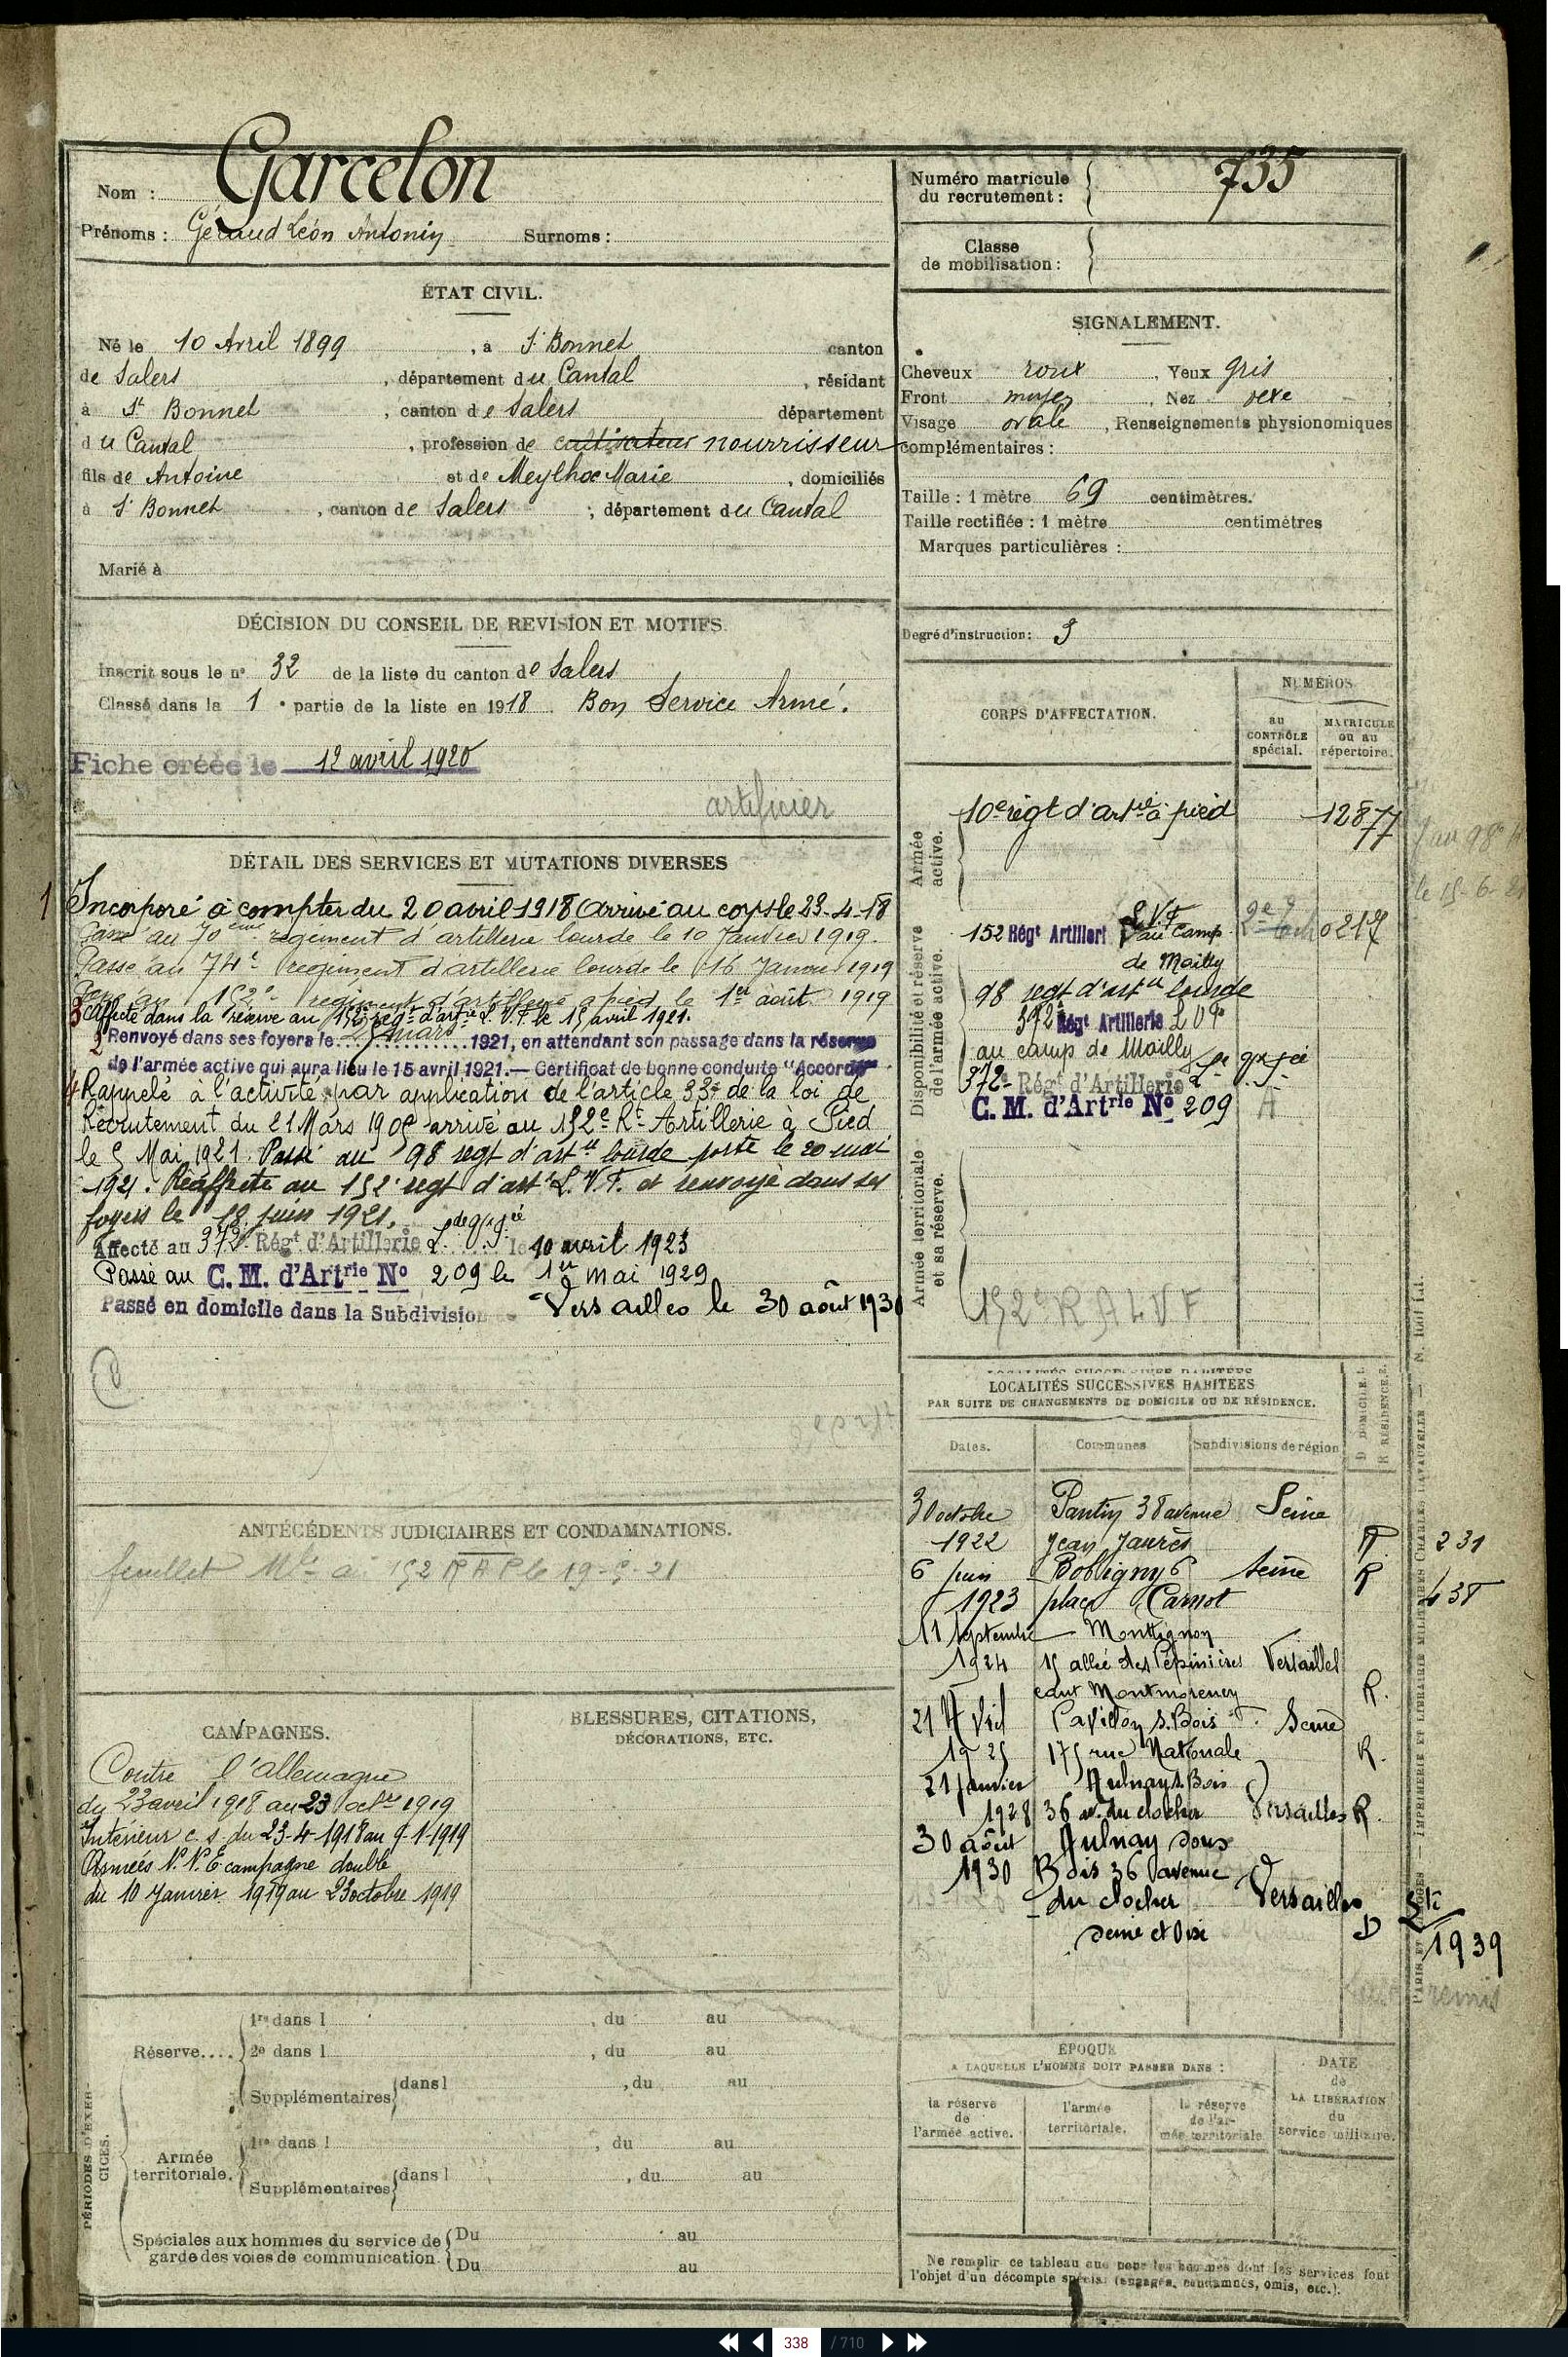 Nom : Garcelon
Prénoms : Géraud Léon Antonin Surnoms :
ÉTAT CIVIL.
Né le 10 Avril 1899, à St Bonnet canton
de Salers, département du Cantal, résidant
à St Bonnet, canton de Salers département
du Cantal, profession de cultivateur nourrisseur
fils de Antoine et de Meylhoc Marie, domiciliés
à St Bonnet, canton de Salers, département du Cantal
Marié à
DÉCISION DU CONSEIL DE REVISION ET MOTIFS.
Inscrit sous le n° 32 de la liste du canton de Salers
Classé dans la 1e partie de la liste en 1918. Bon Service Armé.
Fiche créée le 12 avril 1920
artificier
DÉTAIL DES SERVICES ET MUTATIONS DIVERSES
1 Incorporé à compter du 20 avril 1918 Arrivé au corps le 23-4-18
Passé au 70ème régiment d'artillerie lourde le 10 Janvier 1919.
Passé au 74e régiment d'artillerie lourde le 16 Janvier 1919
Passé au 152e régiment d'artillerie à pied le 1er août 1919
3 Affecté dans la réserve au 152e régt d'artie L.V.F. le 15 avril 1921.
2 Renvoyé dans ses foyers le mars 1921, en attendant son passage dans la réserve
de l'armée active qui aura lieu le 15 avril 1921.— Certificat de bonne conduite "Accordé"
4 Rappelé à l'activité par application de l'article 33 de la loi de
Recrutement du 21 Mars 1905 arrivé au 152e Rt Artillerie à Pied
le 5 Mai 1921. Passé au 98 regt d'artie lourde porté le 20 mai
1921. Réaffecté au 152e regt d'art L.V.F. et renvoyé dans ses
foyers le 18 juin 1921.
Affecté au 372e Régt d'Artillerie L. de gde pée le 10 avril 1923
Passé au C. M. d'Artrie No 209 le 1er mai 1929
Passé en domicile dans la Subdivision de Versailles le 30 août 1930
ANTÉCÉDENTS JUDICIAIRES ET CONDAMNATIONS.
feuillet Mle à 152 RAP le 19-5-21
CAMPAGNES.
Contre l'allemagne
du 23 avril 1918 au 23 octre 1919
Intérieur c. s. du 23-4-1918 au 9-1-1919
Armées N. N. E campagne double
du 10 Janvier 1919 au 23 octobre 1919
BLESSURES, CITATIONS,
DÉCORATIONS, ETC.
PÉRIODES D'EXERCICES.
Réserve....
1re dans l , du au
2e dans l , du au
Supplémentaires dans l , du au
Armée territoriale.
1re dans l , du au
Supplémentaires dans l , du au
Spéciales aux hommes du service de
garde des voies de communication.
Du au
Du au
Numéro matricule
du recrutement : 735
Classe
de mobilisation :
SIGNALEMENT.
Cheveux roux, Yeux gris
Front moyen, Nez vexe
Visage ovale, Renseignements physionomiques
complémentaires :
Taille : 1 mètre 69 centimètres.
Taille rectifiée : 1 mètre centimètres
Marques particulières :
Degré d'instruction : 3
CORPS D'AFFECTATION.
NUMÉROS
au CONTRÔLE spécial.
MATRICULE ou au répertoire.
Armée active.
10e régt d'artie à pied 12877
Disponibilité et réserve de l'armée active.
152 Régt Artilleri L.V.F au Camp 0217
de Mailly
98 regt d'artie lourde
372e Régt Artillerie L V F
au camp de Mailly
372e Régt d'Artillerie L de gde pée
C. M. d'Artrie No 209 A
Armée territoriale et sa réserve.
152e R A L V F
LOCALITÉS SUCCESSIVES HABITÉES
PAR SUITE DE CHANGEMENTS DE DOMICILE OU DE RÉSIDENCE.
Dates. Communes Subdivisions de région D DOMICILE. R RÉSIDENCE.
3 octobre Pantin 38 avenue Seine
1922 Jean Jaurès R 231
6 juin Bobigny 6 Seine R
1923 place Carnot 438
11 septembre Montlignon
1924 15 allée des Pépinières Versailles
cant Montmorency R.
21 Avril Pavillon s. Bois Seine
1925 175 rue Nationale R.
21 janvier Aulnay s. Bois
1928 36 av. du clocher Versailles R.
30 août Aulnay sous
1930 Bois 36 avenue
du clocher Versailles
Seine et Oise D
1939
remis
ÉPOQUE
A LAQUELLE L'HOMME DOIT PASSER DANS :
DATE
de
LA LIBÉRATION
du
service militaire.
la réserve
de
l'armée active.
l'armée
territoriale.
la réserve
de l'armée territoriale.
Ne remplir ce tableau que pour les hommes dont les services font
l'objet d'un décompte spécial (engagés, condamnés, omis, etc.).
PARIS ET LIMOGES. — IMPRIMERIE ET LIBRAIRIE MILITAIRES CHARLES LAVAUZELLE —
338 / 710